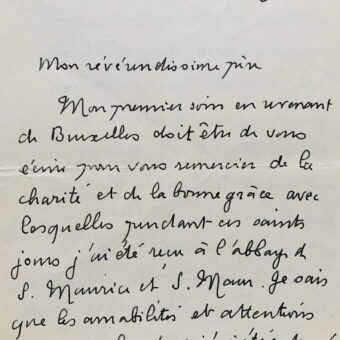 Mon révérendissime père
Mon premier soin en revenant
de Bruxelles doit être de vous
écrire pour vous remercier de la
charité et de la bonne grâce avec
lesquelles pendant ces saints
jours j'ai été reçu à l'abbaye de
S. Maurice et S. Maur. Je sais
que les amabilités et attentions